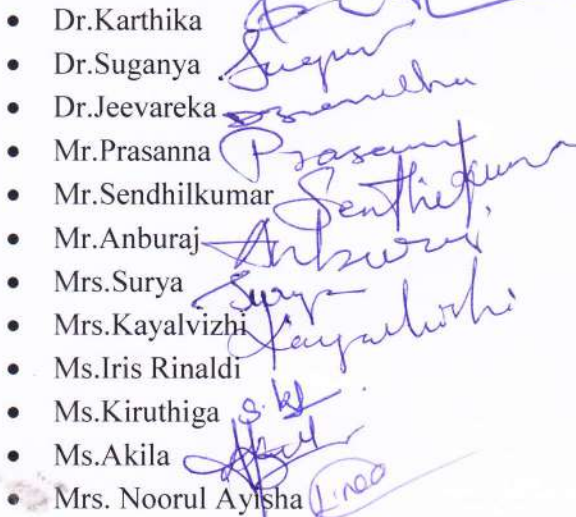 • Dr.Karthika
• Dr.Suganya Suganya
• Dr.Jeevareka
• Mr.Prasanna Prasanna
• Mr.Sendhilkumar Senthilkumar
• Mr.Anburaj Anburaj
• Mrs.Surya Surya
• Mrs.Kayalvizhi Kayalvizhi
• Ms.Iris Rinaldi
• Ms.Kiruthiga
• Ms.Akila
• Mrs. Noorul Ayisha